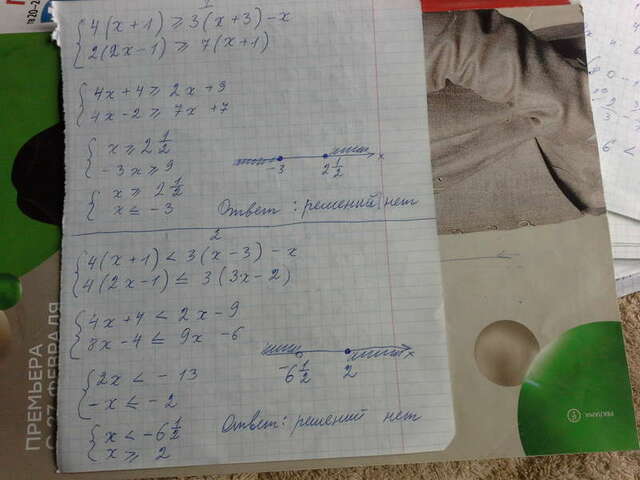 1
{4(x+1) ⩾ 3(x+3)-x
{2(2x-1) ⩾ 7(x+1)
{4x+4 ⩾ 2x+9
{4x-2 ⩾ 7x+7
{x ⩾ 2 1/2
{-3x ⩾ 9
-3 2 1/2 x
{x ⩾ 2 1/2
{x ≤ -3
Ответ: решений нет
2
{4(x+1) < 3(x-3)-x
{4(2x-1) ≤ 3(3x-2)
{4x+4 < 2x-9
{8x-4 ≤ 9x-6
-6 1/2 2 x
{2x < -13
{-x ≤ -2
Ответ: решений нет
{x < -6 1/2
{x ⩾ 2
ПРЕМЬЕРА
С 27 ФЕВРАЛЯ
РЕКЛАМА